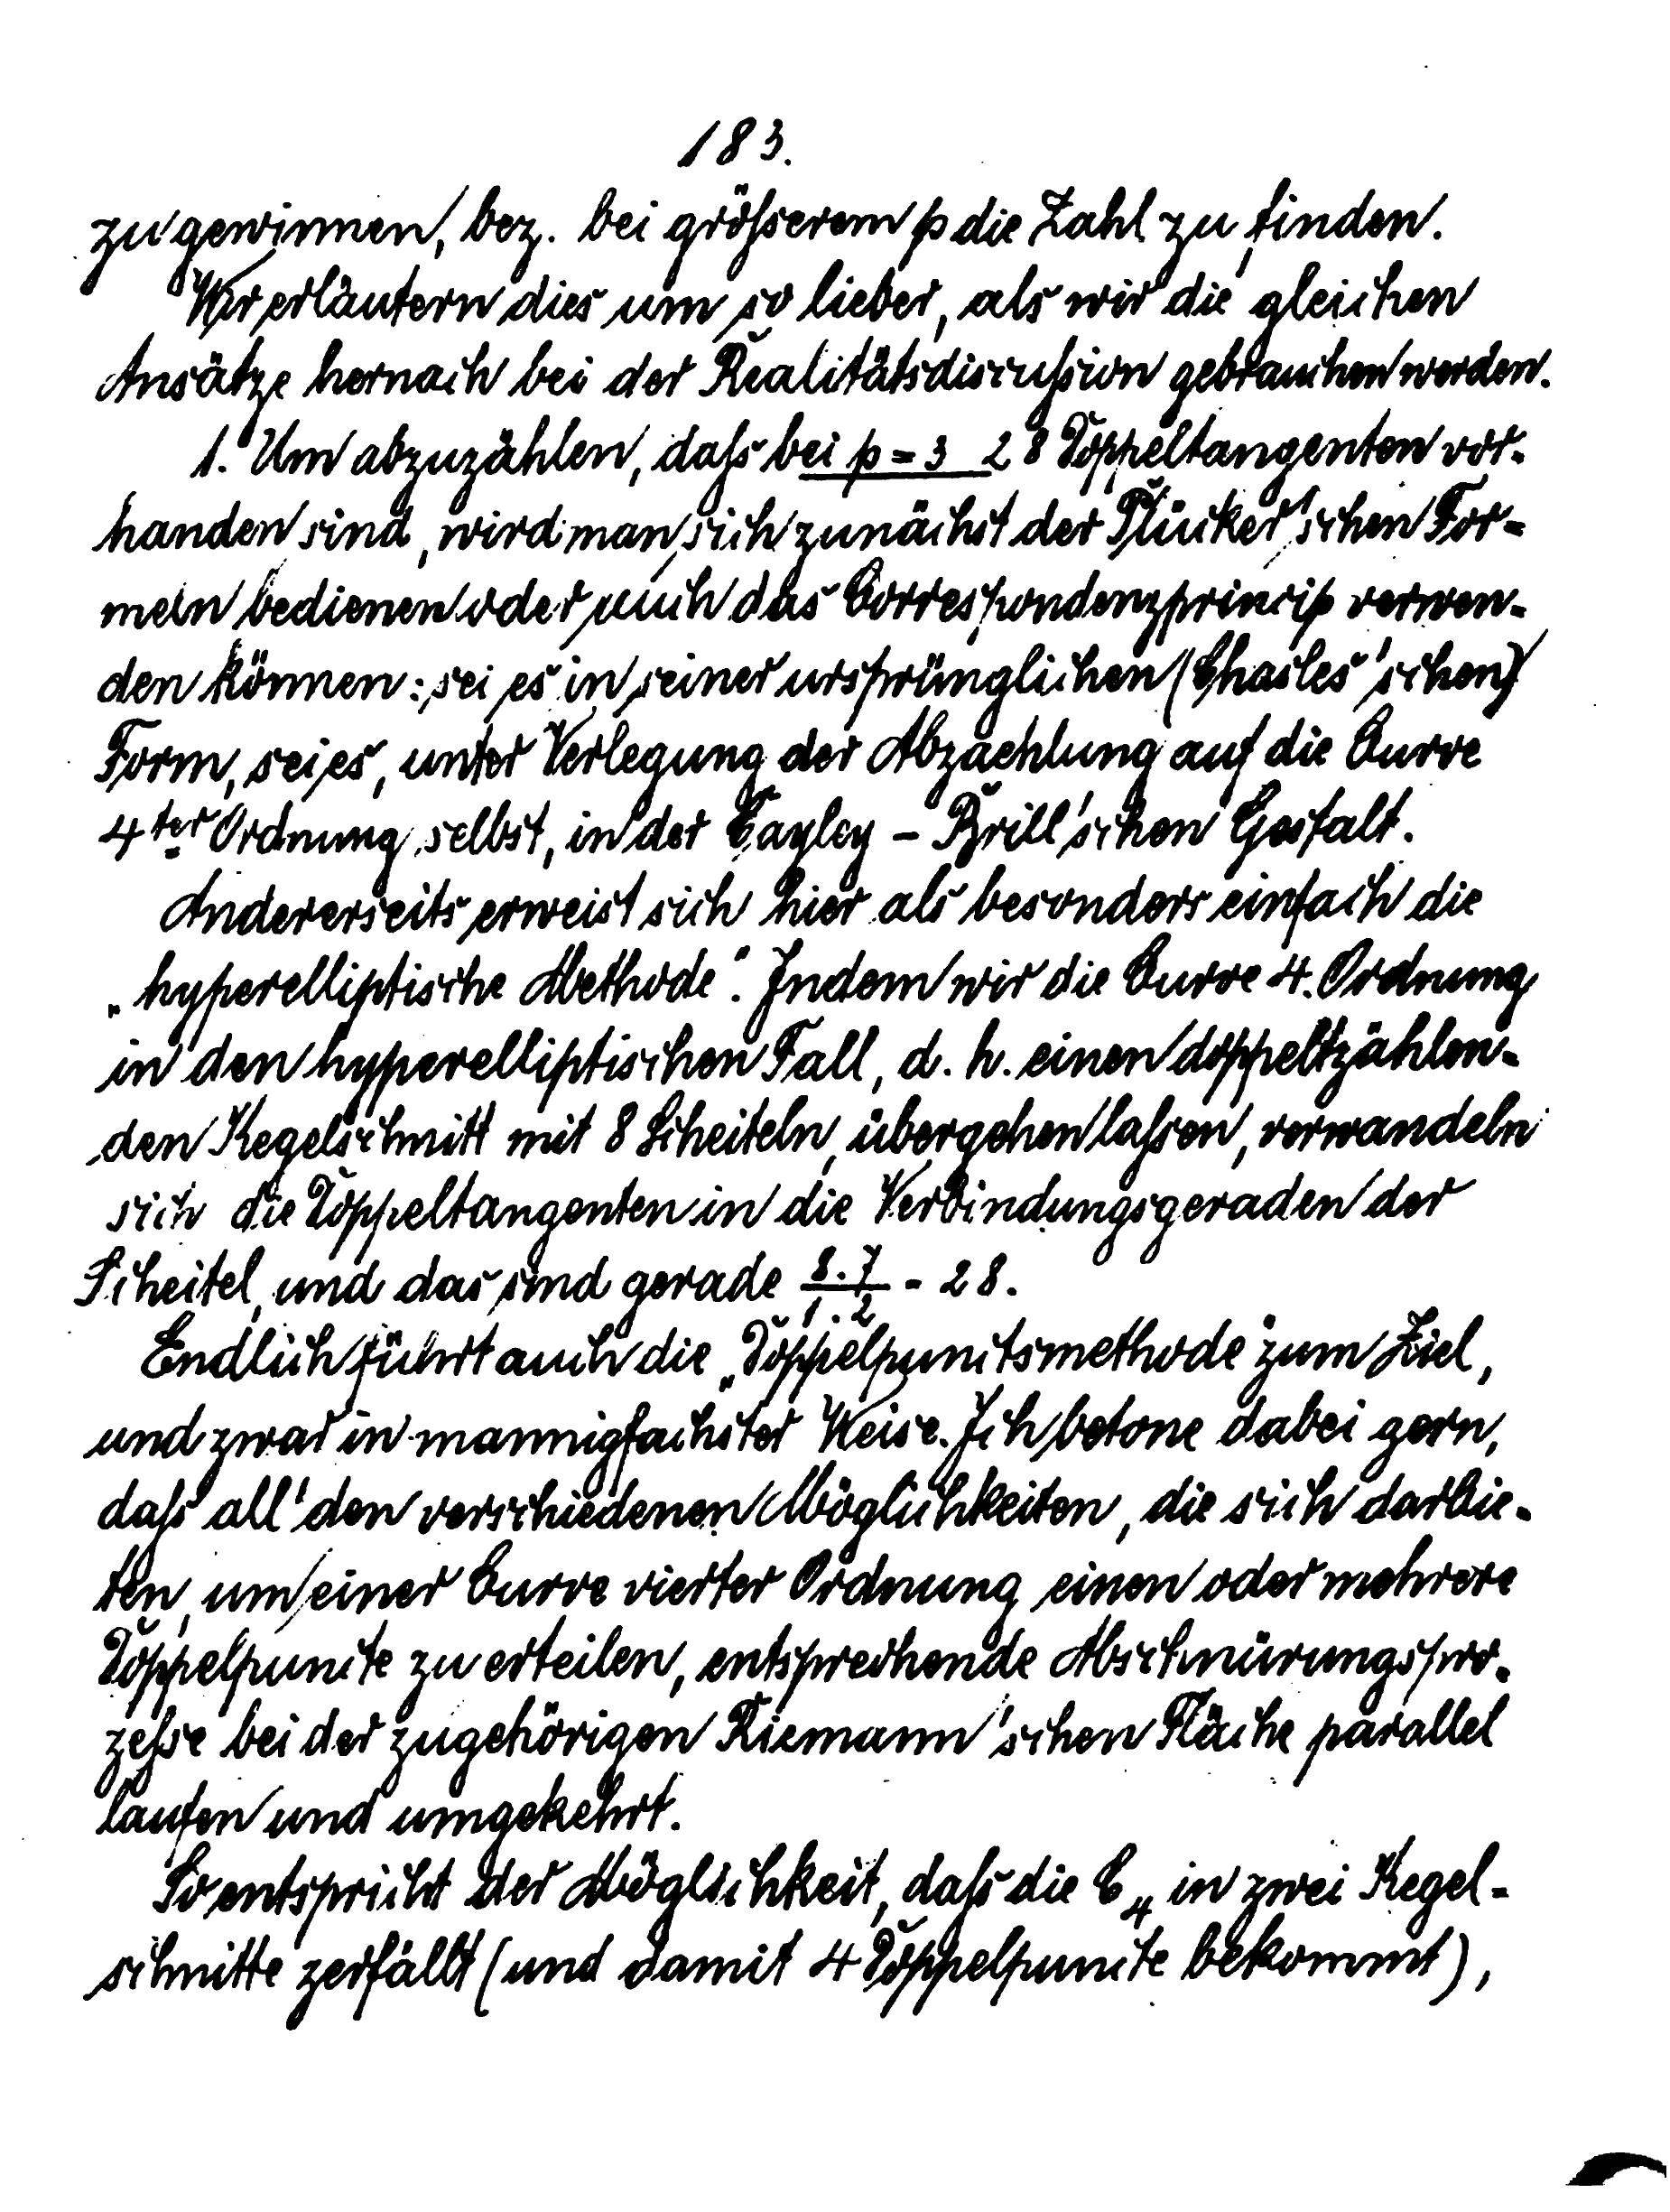 183.
zu gewinnen, bez. bei grösserem p die Zahl zu finden.
Wir erläutern dies um so lieber, als wir die gleichen
Ansätze hernach bei der Realitätsdiscussion gebrauchen werden.
1. Um abzuzählen, dass bei p = 3 28 Doppeltangenten vor-
handen sind, wird man sich zunächst der Plücker'schen For-
meln bedienen oder auch das Correspondenzprincip verwen-
den können: sei es in seiner ursprünglichen (Chasles'schen)
Form, sei es, unter Verlegung der Abzaehlung auf die Curve
4ter Ordnung selbst, in der Cayley - Brill'schen Gestalt.
Andererseits erweist sich hier als besonders einfach die
„hyperelliptische Methode". Indem wir die Curve 4. Ordnung
in den hyperelliptischen Fall, d. h. einen doppeltzählen-
den Kegelschnitt mit 8 Scheiteln, übergehen lassen, verwandeln
sich die Doppeltangenten in die Verbindungsgeraden der
Scheitel, und das sind gerade 8.7/1.2 = 28.
Endlich führt auch die „Doppelpunctsmethode" zum Ziel,
und zwar in mannigfachster Weise. Ich betone dabei gern,
dass all' den verschiedenen Möglichkeiten, die sich darbie-
ten, um einer Curve vierter Ordnung einen oder mehrere
Doppelpuncte zu erteilen, entsprechende Abschnürungspro-
zesse bei der zugehörigen Riemann'schen Fläche parallel
laufen und umgekehrt.
So entspricht der Möglichkeit, dass die C₄ in zwei Kegel-
schnitte zerfällt (und damit 4 Doppelpuncte bekommt),